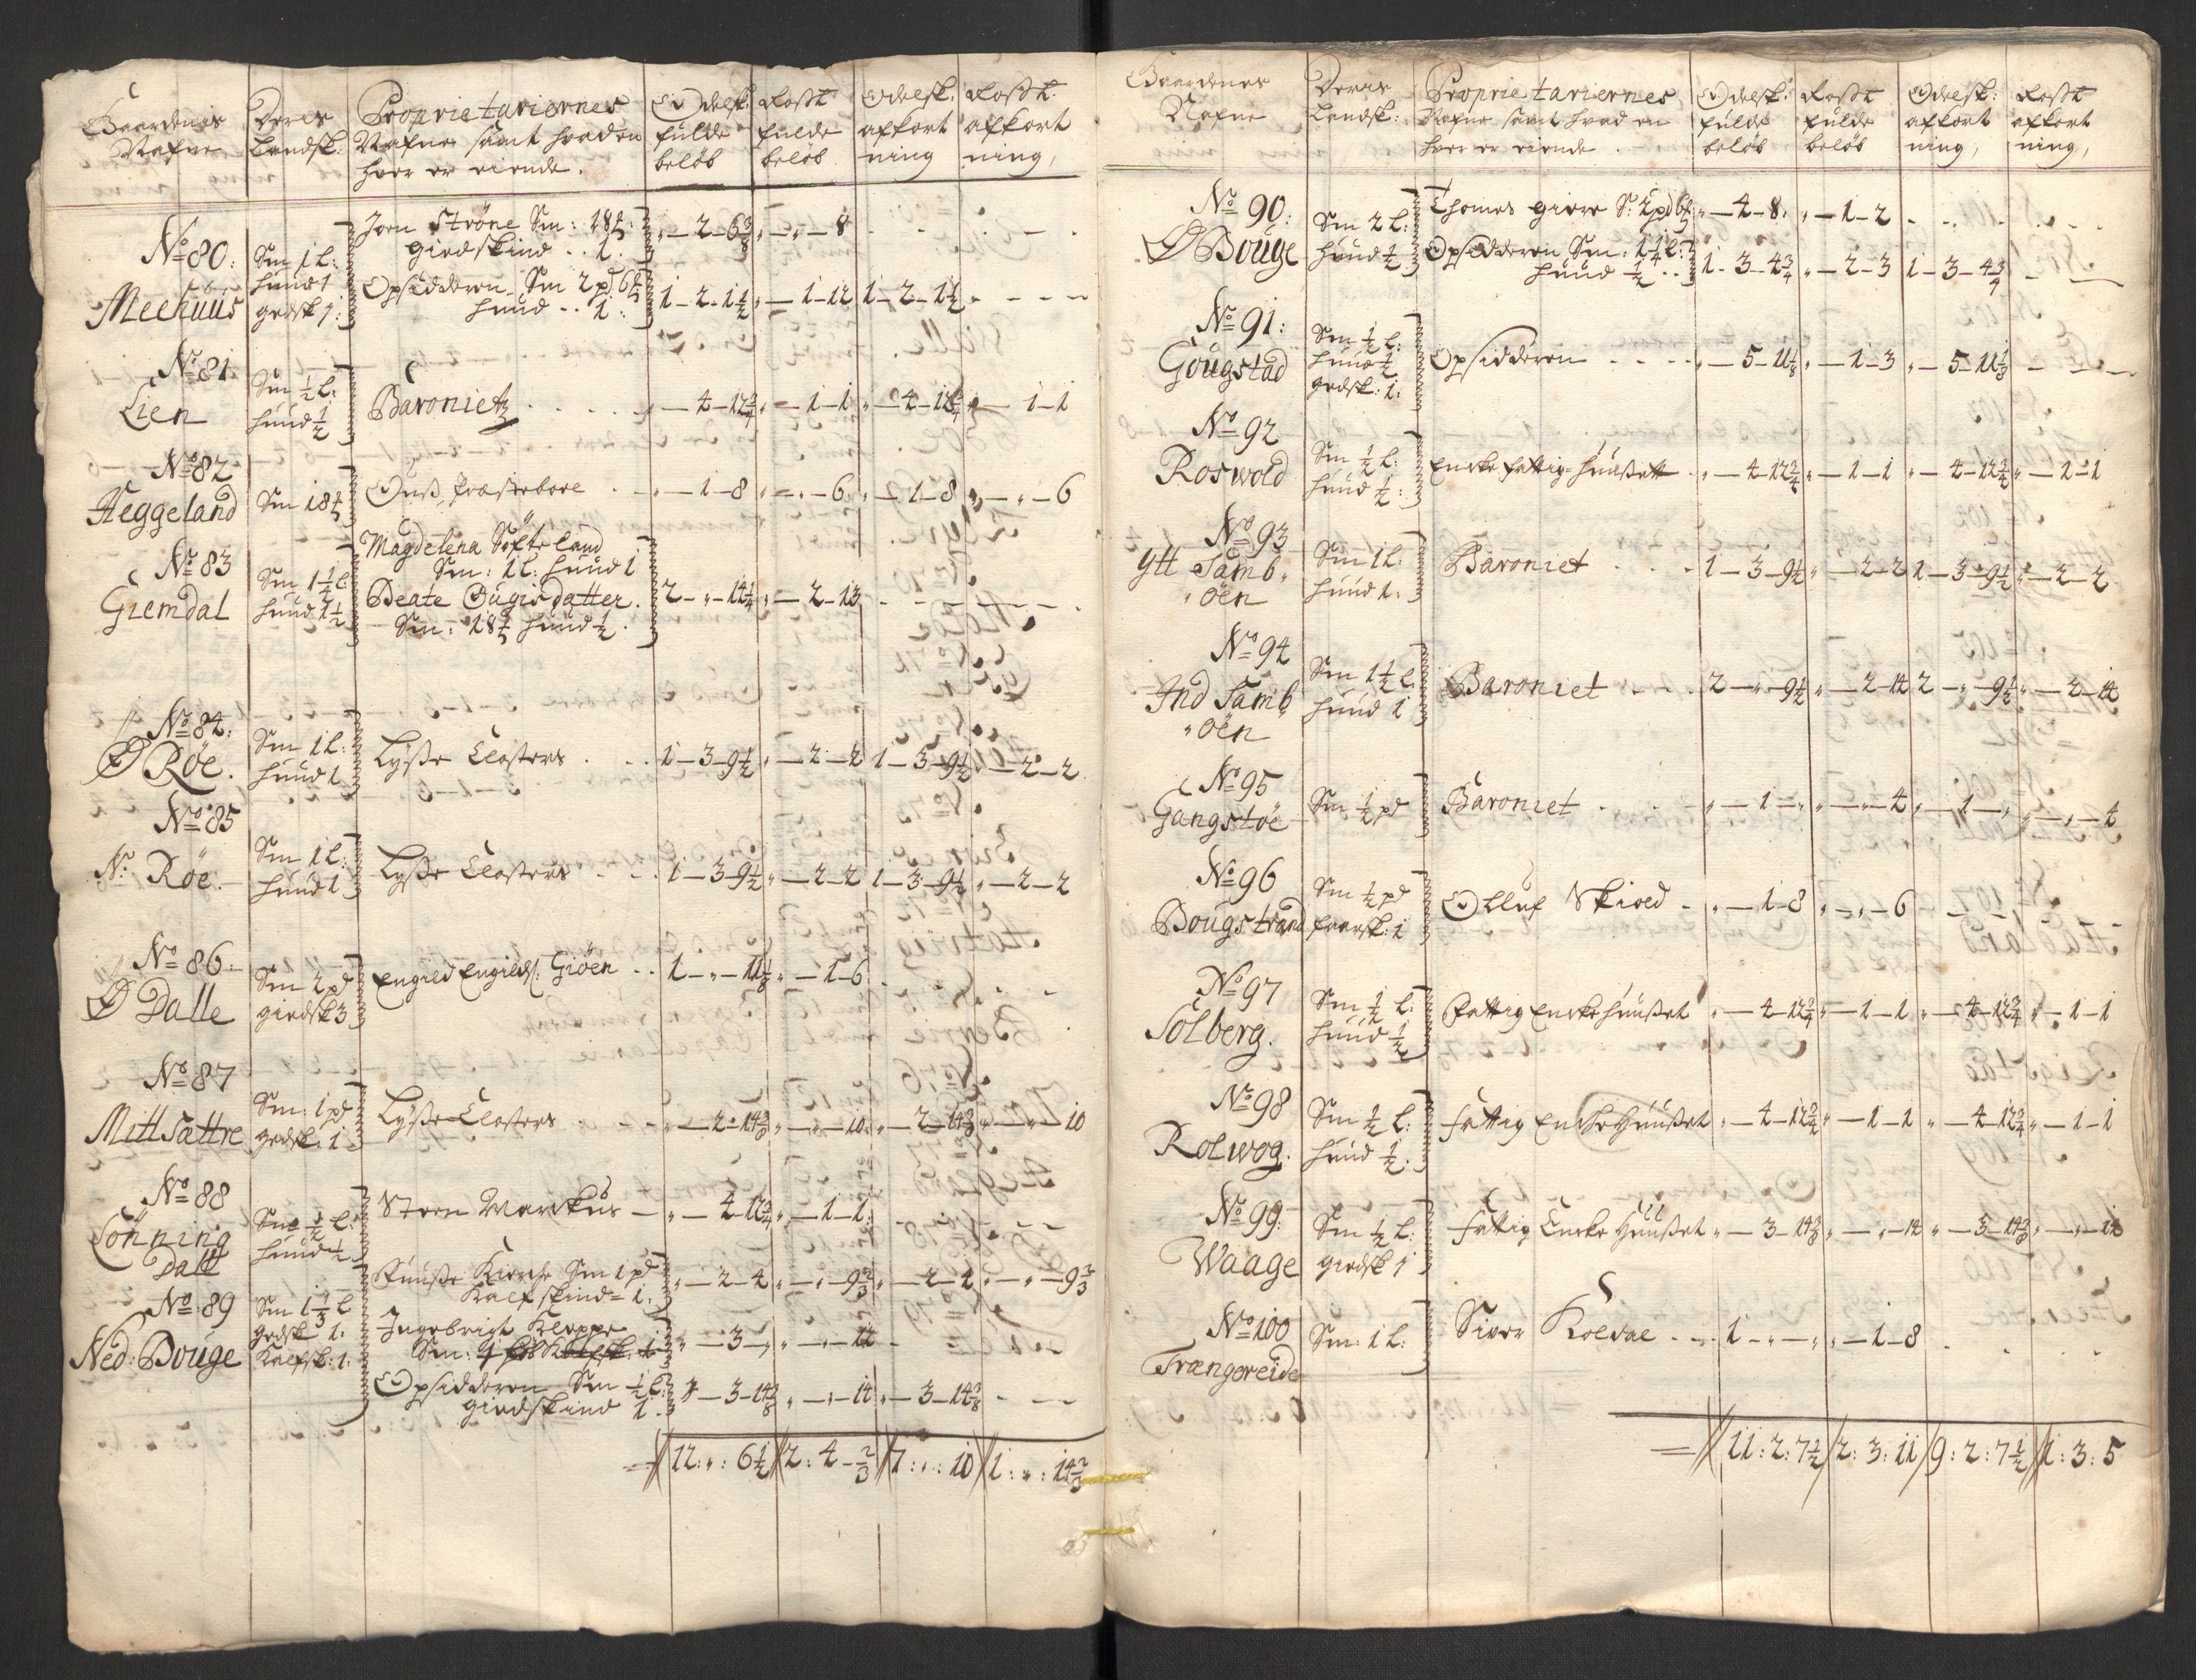 Gaardenis Nafne
Deris Landsk:
Proprietariernes Nafne samt hvad en hver er eiende.
Odelsk: fulde beløb
Rostt fulde beløb
Odelsk: afkort ning
Rostt: afkort ning,
No 80:
Meehuus
Sm 1 l:
huud 1
gedsk 1:
Jorn Ströne Sm: 18 ...
giedskind .. 1.
„—2—6 3/8 „—„—8
Opsidderen Sm 2 pd 6 ...
huud .. 1:
1—2—1 1/2 „—1—12 1—2—1 1/2
No 81
Lien
Sm 1/2 l:
huud 1/2
Baroniet
„—4—12 3/4 „—1—1 „—4—12 3/4 „—1—1
No 82
Heggeland
Sm 18 ...
Ouss Præstebole
„—1—8 „—„—6 „—1—8 „—„—6
No 83
Giemdal
Sm 1 1/4 l:
huud 1 1/2
Magdelena Söfteland
Sm: 1 l: huud 1
Beate Ougisdatter.
Sm: 18 ... huud 1/2.
2—„—14 1/4 „—2—13
No 84:
Ø Röe.
Sm 1 l:
huud 1
Lysse Closters
1—3—9 1/2 „—2—2 1—3—9 1/2 „—2—2
No 85
N. Röe.
Sm 1 l:
huud 1
Lysse Closters
1—3—9 1/2 „—2—2 1—3—9 1/2 „—2—2
No 86
Ø Dalle
Sm 2 pd
giedsk 3
Engild Engilds: Giöen
1—„—11 1/8 „—1—6
No 87
Mittsattre
Sm: 1 pd
gedsk: 1
Lysse Closters
„—2—14 3/8 „—„—10 „—2—14 3/8 „—„—10
No 88
Lönning
Dall
Sm 1/2 l:
huud 1/2
Steen Warckus
„—4—12 3/4 „—1—1
No 89
Ned: Bouge
Sm 1 1/3 l
gedsk 1:
Kalfsk: 1:
Fuusse Kierche Sm 1 pd
Kalfskind 1:
„—2—4 „—„—9 2/3 „—2—4 „—„—9 2/3
Ingebrigt Kloppe
Sm:
„—3—„ „—„—12
Opsidderen Sm 1/2 l:
giedskind 1.
„—3—14 3/8 „—„—14 „—3—14 3/8
12:„:6 1/2 2:4—2/3 7:„:10 1:„:14 2/3
Gaardenes Nafne
Deris Landsk:
Proprietariernes Nafne samt hvad en hver er eiende.
Odelsk: fulde beløb
Rostt fulde beløb
Odelsk: afkort ning,
Rostt afkort ning,
No 90:
Ø Bouge
Sm 2 l:
huud 1/2
Thomes giere S: 2 pd 6 ...
„—4—8. „—1—2
Opsidderen Sm: 1 1/4 l:
huud 1/2 ..
1—3—4 3/4 „—2—3 1—3—4 3/4
No 91:
Gougstad
Sm 1/2 l:
huud 1/2
gedsk: 1:
Opsidderen
„—5—11 1/8 „—1—3 „—5—11 1/8
No 92
Roswold
Sm 1/2 l:
huud 1/2:
Encke fattig=huussett
„—4—12 3/4 „—1—1 „—4—12 3/4 „—1—1
No 93
Ytt Samb„
„öen
Sm 1 l:
huud 1.
Baroniet
1—3—9 1/2 „—2—2 1—3—9 1/2 „—2—2
No 94
Ind Samb
„öen
Sm 1 1/2 l:
huud 1
Baroniet
2—„—9 1/2 „—2—14 2—„—9 1/2 „—2—14
No 95
Gangstöe
Sm 1/2 pd
Baroniet
„—1—„ „—„—4 „—1—„ „—„—4
No 96
Bougstrand
Sm 1/2 pd
faarsk: 1
Olluf Skioed
„—1—8 „—„—6
No 97
Solberg.
Sm 1/2 l:
huud 1/2
Fattig Encke huusset
„—4—12 3/4 „—1—1 „—4—12 3/4 „—1—1
No 98
Rolwog.
Sm 1/2 l:
huud 1/2.
Fattig Encke Huusset
„—4—12 3/4 „—1—1 „—4—12 3/4 „—1—1
No 99:
Waage
Sm 1/2 l:
giedsk 1
Fattig Encke Huusset
„—3—14 3/8 „—„—14 „—3—14 3/8 „—„—14
No 100
Trængereide
Sm: 1 l:
Siver Koldal
1—„—„ „—1—8
11:2:7 1/2 2:3:11 9:2:7 1/2 1:3:5